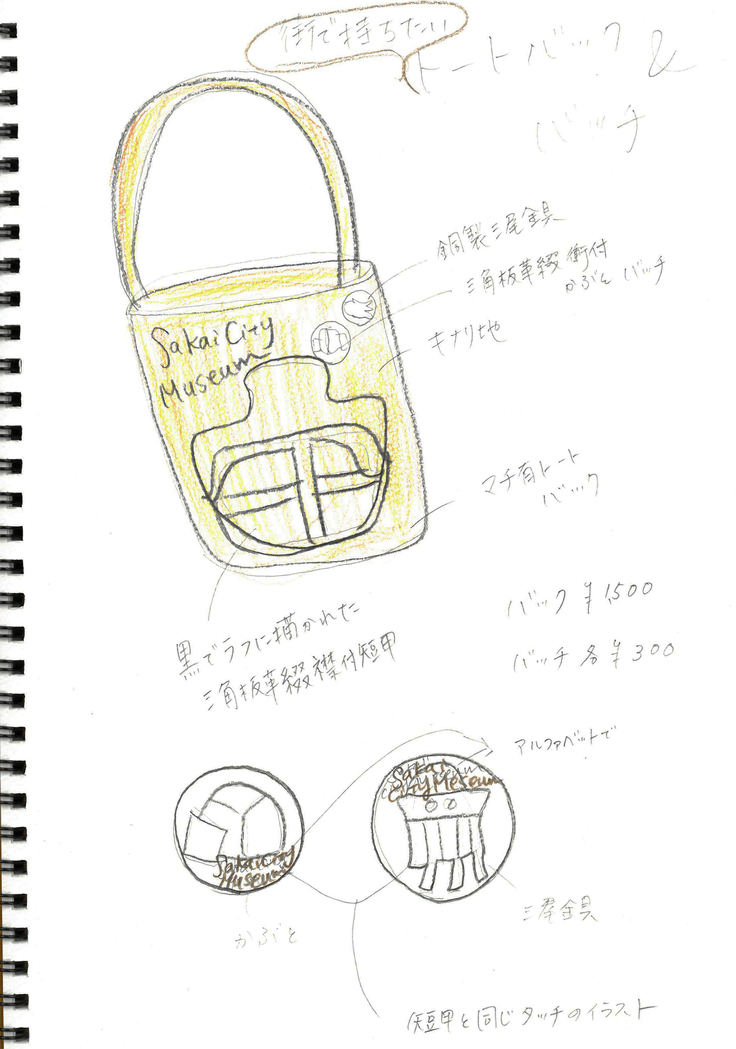 街で持ちたい
トートバック &
バッチ
銅製三尾金具
三角板革綴衝付
かぶと バッチ
キナリ地
Sakai City
Museum
マチ有トート
バック
黒でラフに描かれた
三角板革綴襟付短甲
バック ¥1,500
バッチ 各¥300
アルファベットで
Sakai
City Meseum
Sakai City
Museum
かぶと
三尾金具
短甲と同じタッチのイラスト